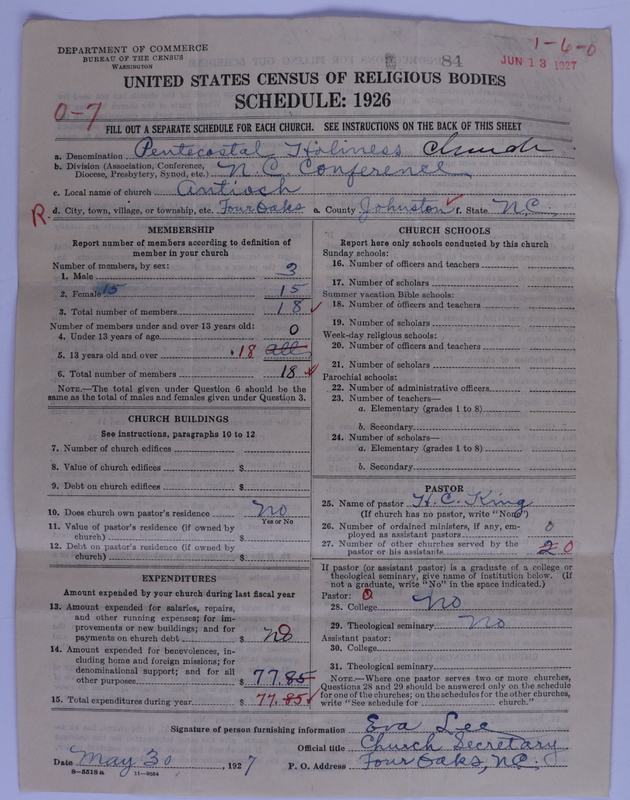 DEPARTMENT OF COMMERCE
BUREAU OF THE CENSUS
WASHINGTON
84
JUN 13 1927
1-6-0
UNITED STATES CENSUS OF RELIGIOUS BODIES
SCHEDULE: 1926
0-7
FILL OUT A SEPARATE SCHEDULE FOR EACH CHURCH. SEE INSTRUCTIONS ON THE BACK OF THIS SHEET
a. Denomination Pentecostal Holiness Church
b. Division (Association, Conference, Diocese, Presbytery, Synod, etc.) N.C. Conference
c. Local name of church Antioch
R. d. City, town, village, or township, etc. Four Oaks e. County Johnston f. State N.C.
MEMBERSHIP
Report number of members according to definition of
member in your church
Number of members, by sex:
1. Male 3
2. Female 15 15
3. Total number of members 18
Number of members under and over 13 years old:
4. Under 13 years of age 0
5. 13 years old and over 18 all
6. Total number of members 18
NOTE.—The total given under Question 6 should be the
same as the total of males and females given under Question 3.
CHURCH BUILDINGS
See instructions, paragraphs 10 to 12
7. Number of church edifices
8. Value of church edifices $
9. Debt on church edifices $
10. Does church own pastor's residence No
Yes or No
11. Value of pastor's residence (if owned by
church) $
12. Debt on pastor's residence (if owned by
church) $
EXPENDITURES
Amount expended by your church during last fiscal year
13. Amount expended for salaries, repairs,
and other running expenses; for im-
provements or new buildings; and for
payments on church debt $ no
14. Amount expended for benevolences, in-
cluding home and foreign missions; for
denominational support; and for all
other purposes $ 77.85
15. Total expenditures during year $ 77.85
CHURCH SCHOOLS
Report here only schools conducted by this church
Sunday schools:
16. Number of officers and teachers
17. Number of scholars
Summer vacation Bible schools:
18. Number of officers and teachers
19. Number of scholars
Week-day religious schools:
20. Number of officers and teachers
21. Number of scholars
Parochial schools:
22. Number of administrative officers
23. Number of teachers—
a. Elementary (grades 1 to 8)
b. Secondary
24. Number of scholars—
a. Elementary (grades 1 to 8)
b. Secondary
PASTOR
25. Name of pastor H. C. King
(If church has no pastor, write "None")
26. Number of ordained ministers, if any, em-
ployed as assistant pastors 0
27. Number of other churches served by the
pastor or his assistants 2 0
If pastor (or assistant pastor) is a graduate of a college or
theological seminary, give name of institution below. (If
not a graduate, write "No" in the space indicated.)
Pastor: 0
28. College No
29. Theological seminary No
Assistant pastor:
30. College
31. Theological seminary
NOTE.—Where one pastor serves two or more churches,
Questions 28 and 29 should be answered only on the schedule
for one of the churches; on the schedules for the other churches,
write "See schedule for church."
Signature of person furnishing information Eva Lee
Official title Church Secretary
Date May 30, 1927 P. O. Address Four Oaks, N.C.
8-5518 a 11-9554